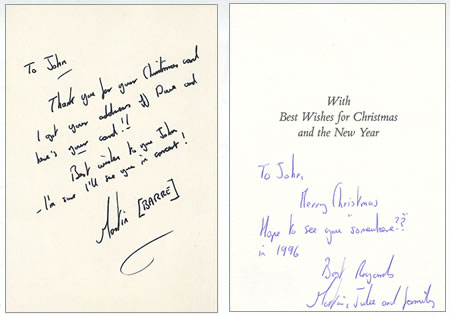 To John
Thank you for your Christmas card
I got your address off Dave and
here's your card!!
Best wishes to you John
- I'm sure I'll see you in concert!
Martin [BARRE]
With
Best Wishes for Christmas
and the New Year
To John,
Merry Christmas
Hope to see you "somewhere??"
in 1996
Best Regards
Martin, Julie and family